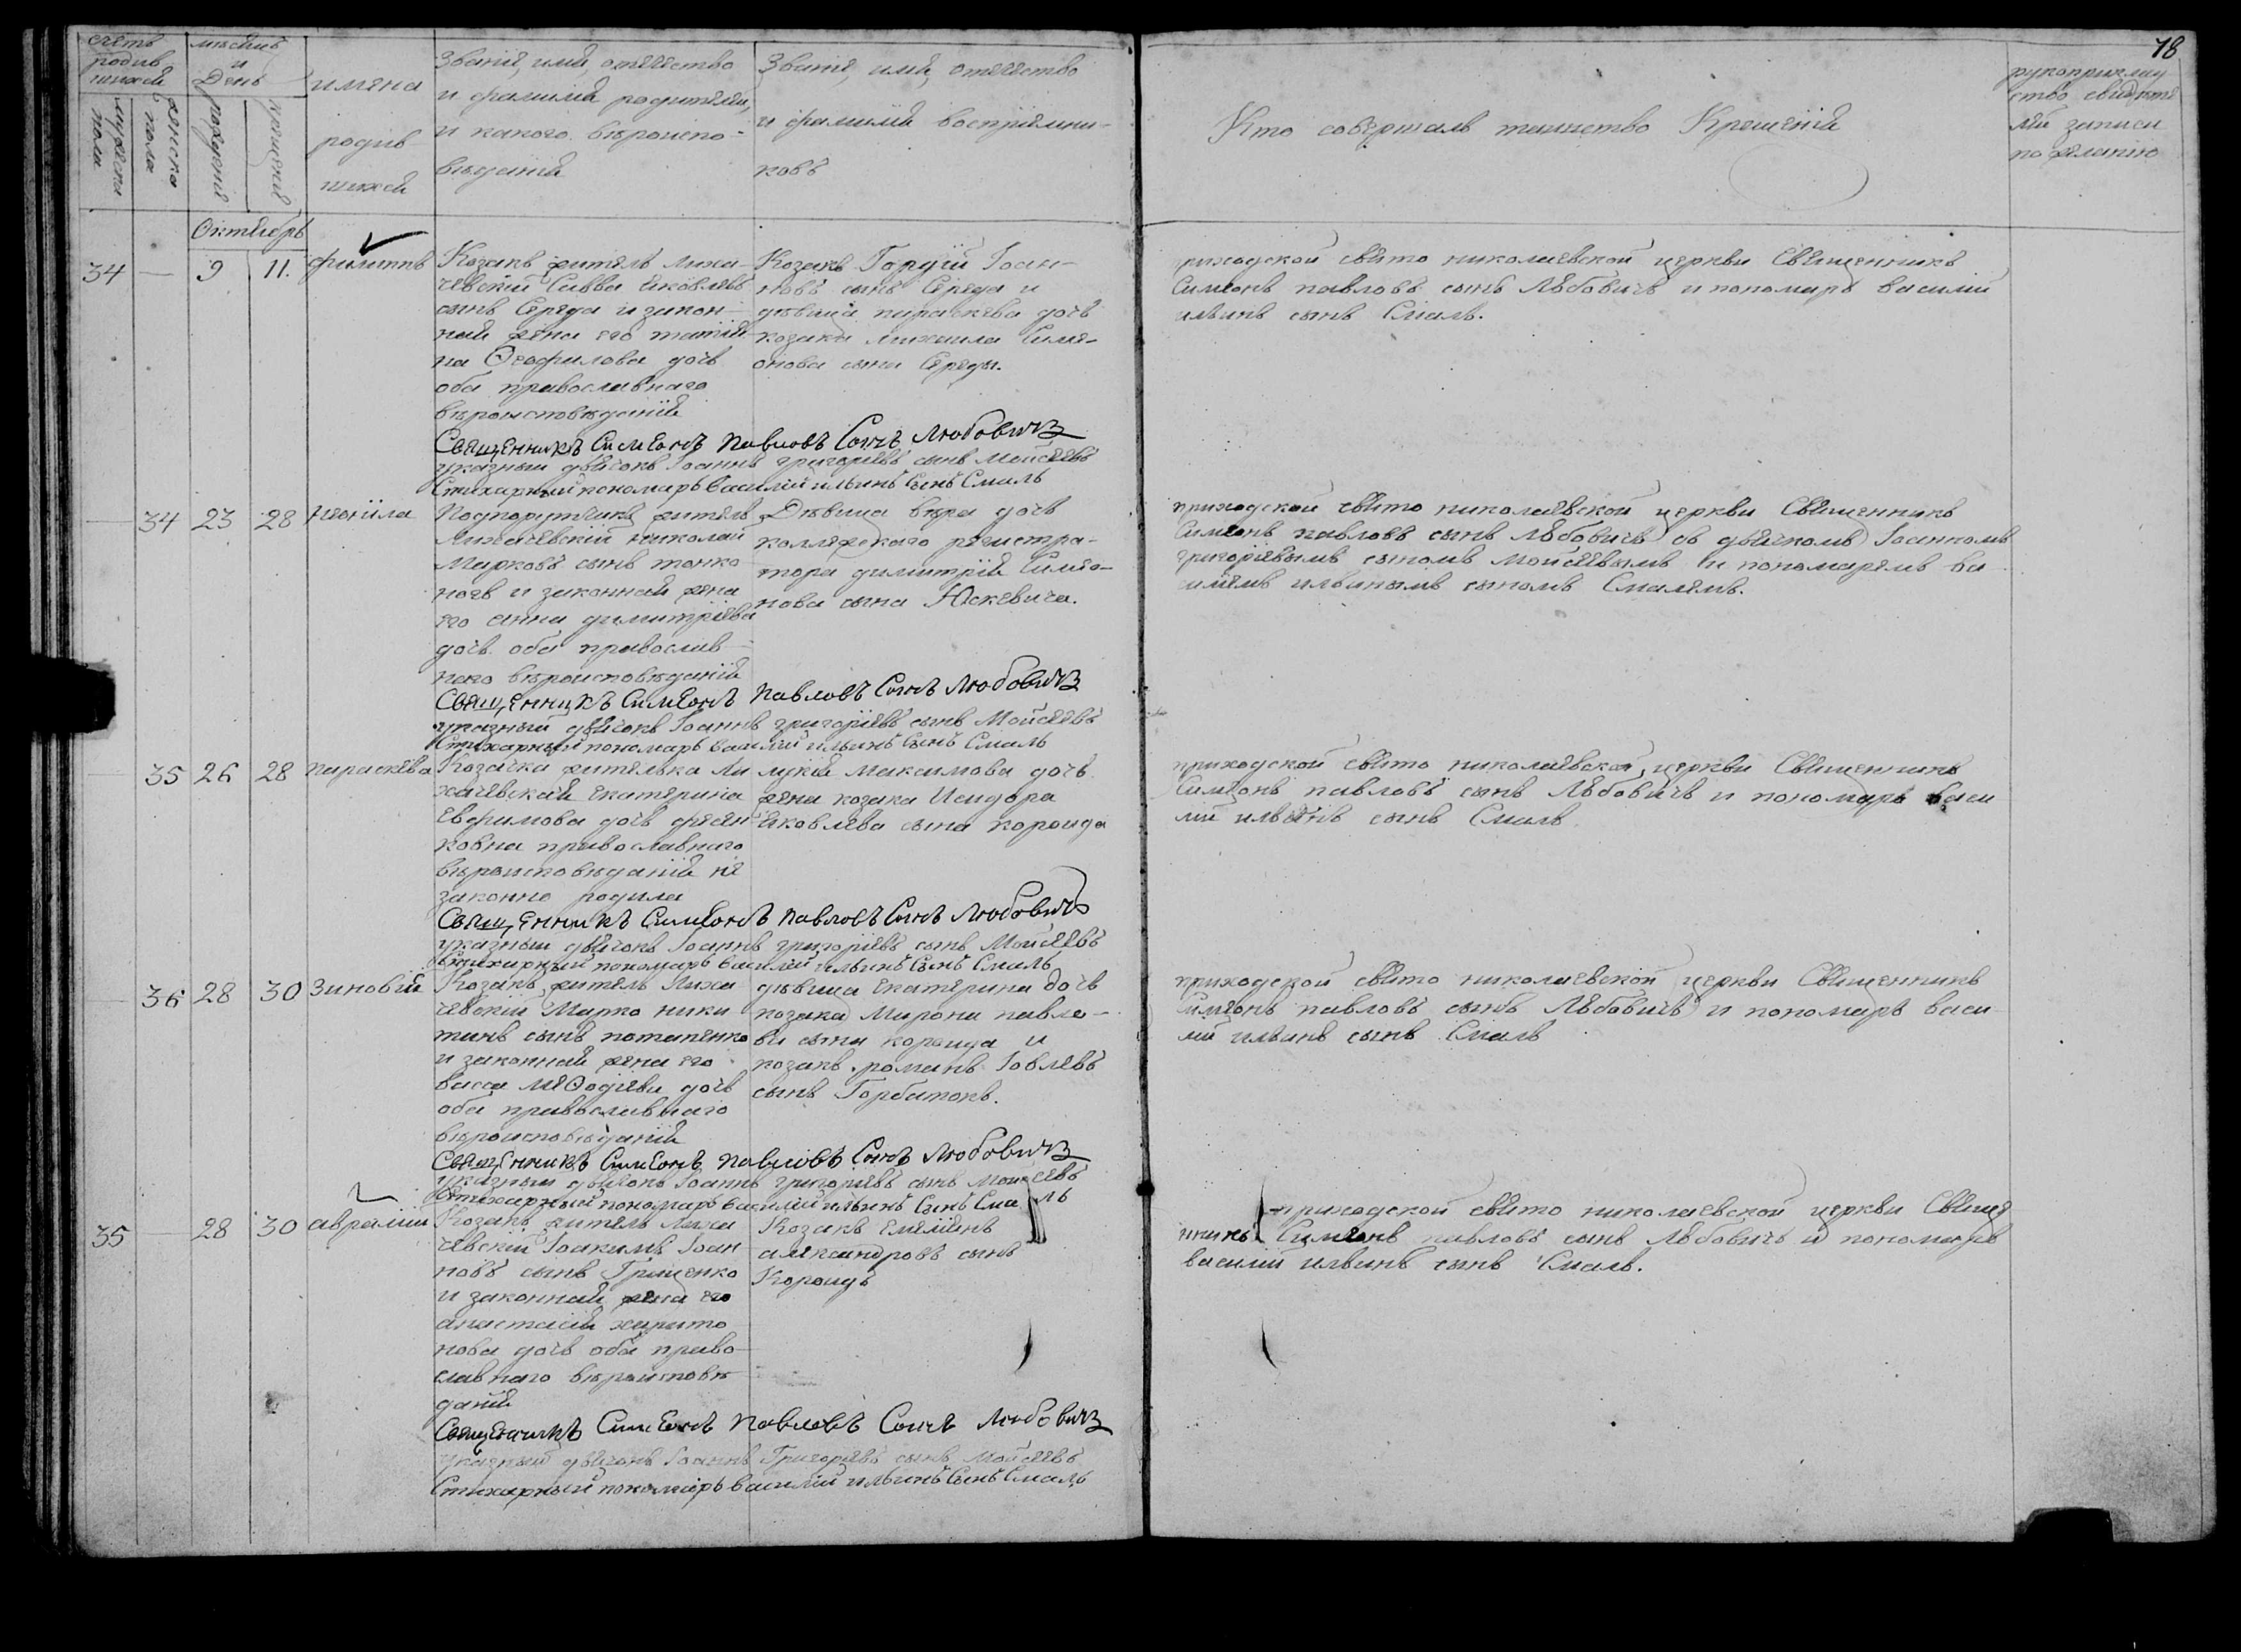 78
счетъ родив шихся
мѣсяцъ и День
мужеска пола
женска пола
рожденія
крещенія
имена родив шихся
Званіе, имя, отечество
и фамилія родителей,
и какого вѣроиспо-
вѣданія
Званіе, имя, отечество
и фамилія воспріемни-
ковъ
Кто совершалъ таинство Крещенія
рукоприклад
ство свидѣте
лей записи
по желанію
Октябрь
34 — 9 11. филиппъ
Козакъ житель Лиха-
чевскій Савва Яковлевъ
сынъ Середа и закон-
ная жена его татія-
на Ѳеофилова дочь
оба православнаго
вѣроисповѣданія
Козакъ Гордій Іоан-
новъ сынъ Середа и
дѣвица параскева дочь
козака михаила Симе-
онова сына Середы.
приходской свято николаевской церкви Священникъ
Симеонъ павловъ сынъ Любовичъ и пономарь василій
ильинъ сынъ Смаль.
Священникъ Симеонъ Павловъ Сынъ Любовичъ
указный дьячокъ Іоаннъ григоріевъ сынъ Мойсеевъ
Стихарный пономарь Василій ильинъ Сынъ Смаль
— 34 23 28 неонила
Подпорутчикъ житель
Лихачевскій николай
Марковъ сынъ тонко
ногъ и законная жена
его анна димитріева
дочь оба православ-
наго вѣроисповѣданія
Дѣвица вѣра дочь
коллежскаго регистра-
тора димитрія Симео-
нова сына Юскевича.
приходской свято николаевской церкви Священникъ
Симеонъ павловъ сынъ Любовичъ съ дьячкомъ Іоанномъ
григоріевымъ сыномъ Мойсеевымъ и пономаремъ ва
силіемъ ильинымъ сыномъ Смалемъ.
Священникъ Симеонъ Павловъ Сынъ Любовичъ
указный дьячокъ Іоаннъ григоріевъ сынъ Мойсеевъ
Стихарный пономарь Василій ильинъ Сынъ Смаль
— 35 26 28 параскева
Козачка жителька Ли
хачевская екатерина
Евфимова дочь
ковна православнаго
вѣроисповѣданія не
законно родила
лукія Максимова дочь
жена козака Исидора
Яковлева сына короида
приходской свято николаевской церкви Священникъ
Симеонъ павловъ сынъ Любовичъ и пономарь васи
лій ильинъ сынъ Смаль
Священникъ Симеонъ Павловъ Сынъ Любовичъ
указный дьячокъ Іоаннъ григоріевъ сынъ Мойсеевъ
Стихарный пономарь Василій ильинъ Сынъ Смаль
— 36 28 30 Зиновія
Козакъ житель Лиха
чевскій Марко ники
тинъ сынъ потапенко
и законная жена его
васса меѳодіева дочь
оба православнаго
вѣроисповѣданія
дѣвица екатерина дочь
козака Мирона павло-
ва сына короида и
козакъ романъ Іовлевъ
сынъ Горбатокъ.
приходской свято николаевской церкви Священникъ
Симеонъ павловъ сынъ Любовичъ и пономарь васи
лій ильинъ сынъ Смаль
Священникъ Симеонъ Павловъ Сынъ Любовичъ
указный дьячокъ Іоаннъ григоріевъ сынъ Мойсеевъ
Стихарный пономарь Василій ильинъ Сынъ Смаль
35 — 28 30 аврамій
Козакъ житель Лиха
чевскій Іоакимъ Іоан
новъ сынъ Грищенко
и законная жена его
анастасія харито
нова дочь оба право-
славнаго вѣроисповѣ
данія
Козакъ емеліянъ
александровъ сынъ
Короидъ
приходской свято николаевской церкви Свяще
нникъ Симеонъ павловъ сынъ Любовичъ и пономарь
василій ильинъ сынъ Смаль.
Священникъ Симеонъ Павловъ Сынъ Любовичъ
указный дьячокъ Іоаннъ Григоріевъ сынъ Мойсеевъ
Стихарный пономарь Василій ильинъ Сынъ Смаль